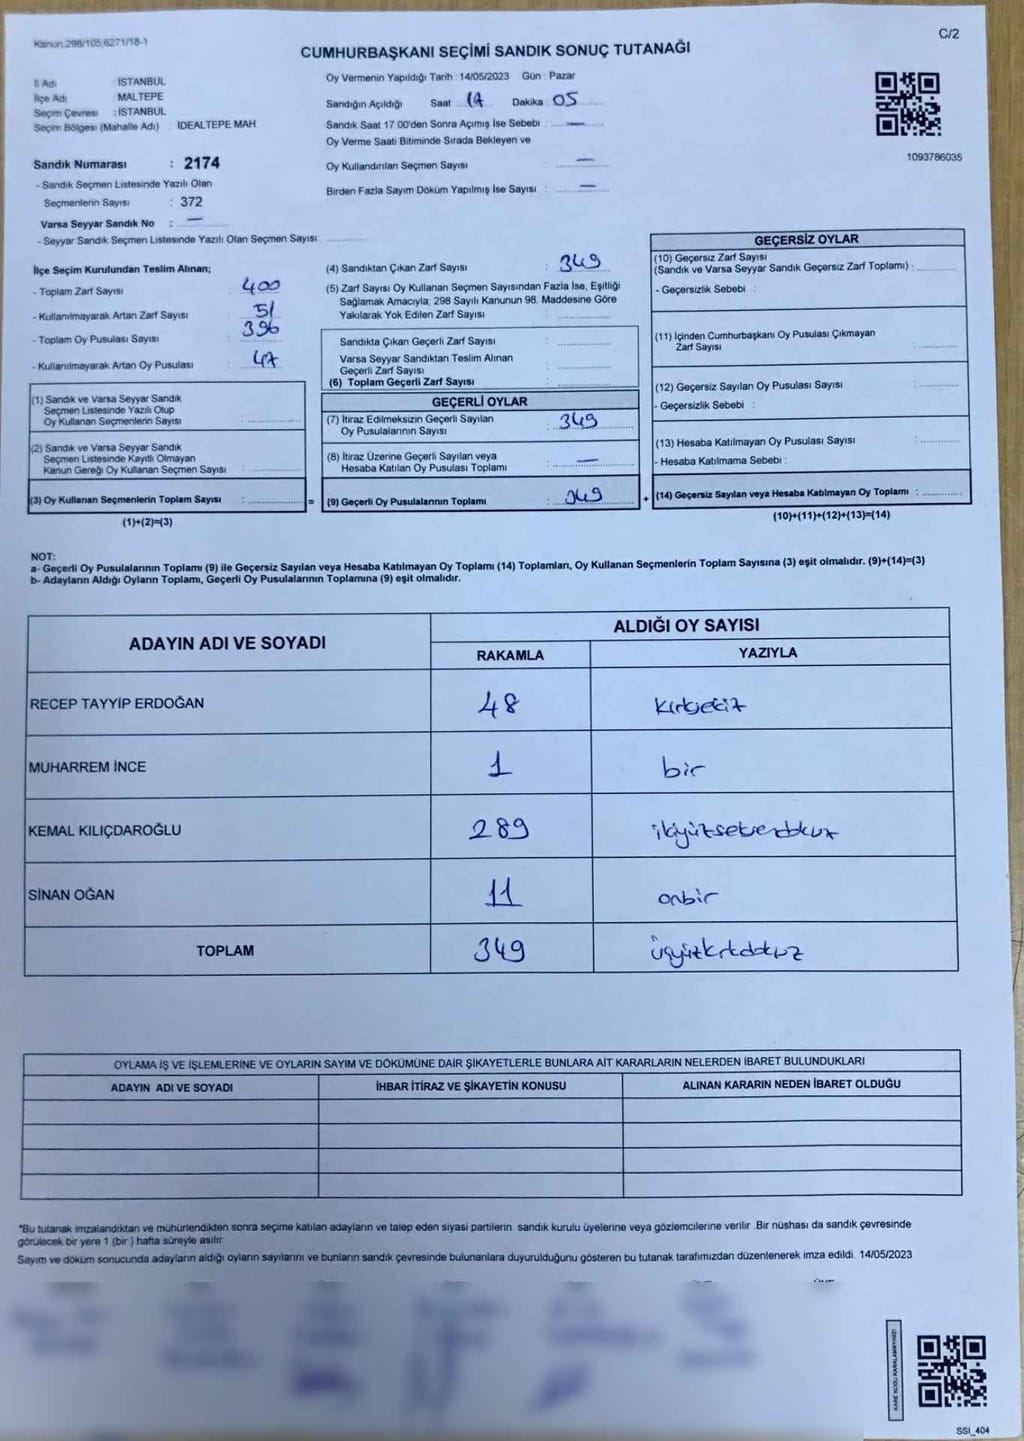 Kanun:298/105,6271/18-1
C/2
CUMHURBAŞKANI SEÇİMİ SANDIK SONUÇ TUTANAĞI
İl Adı İSTANBUL
İlçe Adı MALTEPE
Seçim Çevresi : İSTANBUL
Seçim Bölgesi (Mahalle Adı) : İDEALTEPE MAH.
Sandık Numarası : 2174
- Sandık Seçmen Listesinde Yazılı Olan
Seçmenlerin Sayısı : 372
Varsa Seyyar Sandık No : —
- Seyyar Sandık Seçmen Listesinde Yazılı Olan Seçmen Sayısı:
Oy Vermenin Yapıldığı Tarih : 14/05/2023 Gün : Pazar
Sandığın Açıldığı Saat 17 Dakika 05
Sandık Saat 17:00'den Sonra Açımış İse Sebebi : —
Oy Verme Saati Bitiminde Sırada Bekleyen ve
Oy Kullandırılan Seçmen Sayısı : —
Birden Fazla Sayım Döküm Yapılmış İse Sayısı : —
1093786035
İlçe Seçim Kurulundan Teslim Alınan;
- Toplam Zarf Sayısı : 400
- Kullanılmayarak Artan Zarf Sayısı : 51
- Toplam Oy Pusulası Sayısı : 396
- Kullanılmayarak Artan Oy Pusulası : 47
(1) Sandık ve Varsa Seyyar Sandık
Seçmen Listesinde Yazılı Olup
Oy Kullanan Seçmenlerin Sayısı :
(2) Sandık ve Varsa Seyyar Sandık
Seçmen Listesinde Kayıtlı Olmayan
Kanun Gereği Oy Kullanan Seçmen Sayısı :
(3) Oy Kullanan Seçmenlerin Toplam Sayısı : =
(1)+(2)=(3)
(4) Sandıktan Çıkan Zarf Sayısı : 349
(5) Zarf Sayısı Oy Kullanan Seçmen Sayısından Fazla İse, Eşitliği
Sağlamak Amacıyla; 298 Sayılı Kanunun 98. Maddesine Göre
Yakılarak Yok Edilen Zarf Sayısı :
Sandıkta Çıkan Geçerli Zarf Sayısı :
Varsa Seyyar Sandıktan Teslim Alınan
Geçerli Zarf Sayısı :
(6) Toplam Geçerli Zarf Sayısı :
GEÇERLİ OYLAR
(7) İtiraz Edilmeksizin Geçerli Sayılan
Oy Pusulalarının Sayısı : 349
(8) İtiraz Üzerine Geçerli Sayılan veya
Hesaba Katılan Oy Pusulası Toplamı : —
(9) Geçerli Oy Pusulalarının Toplamı : 349 +
GEÇERSİZ OYLAR
(10) Geçersiz Zarf Sayısı
(Sandık ve Varsa Seyyar Sandık Geçersiz Zarf Toplamı) :
- Geçersizlik Sebebi :
(11) İçinden Cumhurbaşkanı Oy Pusulası Çıkmayan
Zarf Sayısı :
(12) Geçersiz Sayılan Oy Pusulası Sayısı :
- Geçersizlik Sebebi :
(13) Hesaba Katılmayan Oy Pusulası Sayısı :
- Hesaba Katılmama Sebebi :
(14) Geçersiz Sayılan veya Hesaba Katılmayan Oy Toplamı :
(10)+(11)+(12)+(13)=(14)
NOT:
a- Geçerli Oy Pusulalarının Toplamı (9) ile Geçersiz Sayılan veya Hesaba Katılmayan Oy Toplamı (14) Toplamları, Oy Kullanan Seçmenlerin Toplam Sayısına (3) eşit olmalıdır. (9)+(14)=(3)
b- Adayların Aldığı Oyların Toplamı, Geçerli Oy Pusulalarının Toplamına (9) eşit olmalıdır.
ADAYIN ADI VE SOYADI
ALDIĞI OY SAYISI
RAKAMLA YAZIYLA
RECEP TAYYİP ERDOĞAN 48 kırksekiz
MUHARREM İNCE 1 bir
KEMAL KILIÇDAROĞLU 289 ikiyüzseksendokuz
SİNAN OĞAN 11 onbir
TOPLAM 349 üçyüzkırkdokuz
OYLAMA İŞ VE İŞLEMLERİNE VE OYLARIN SAYIM VE DÖKÜMÜNE DAİR ŞİKAYETLERLE BUNLARA AİT KARARLARIN NELERDEN İBARET BULUNDUKLARI
ADAYIN ADI VE SOYADI İHBAR İTİRAZ VE ŞİKAYETİN KONUSU ALINAN KARARIN NEDEN İBARET OLDUĞU
*Bu tutanak imzalandıktan ve mühürlendikten sonra seçime katılan adayların ve talep eden siyasi partilerin sandık kurulu üyelerine veya gözlemcilerine verilir .Bir nüshası da sandık çevresinde
görülecek bir yere 1 (bir ) hafta süreyle asılır
Sayım ve döküm sonucunda adayların aldığı oyların sayılarını ve bunların sandık çevresinde bulunanlara duyurulduğunu gösteren bu tutanak tarafımızdan düzenlenerek imza edildi. 14/05/2023
KARE KODU KARALAMAYINIZ!
SSI_404